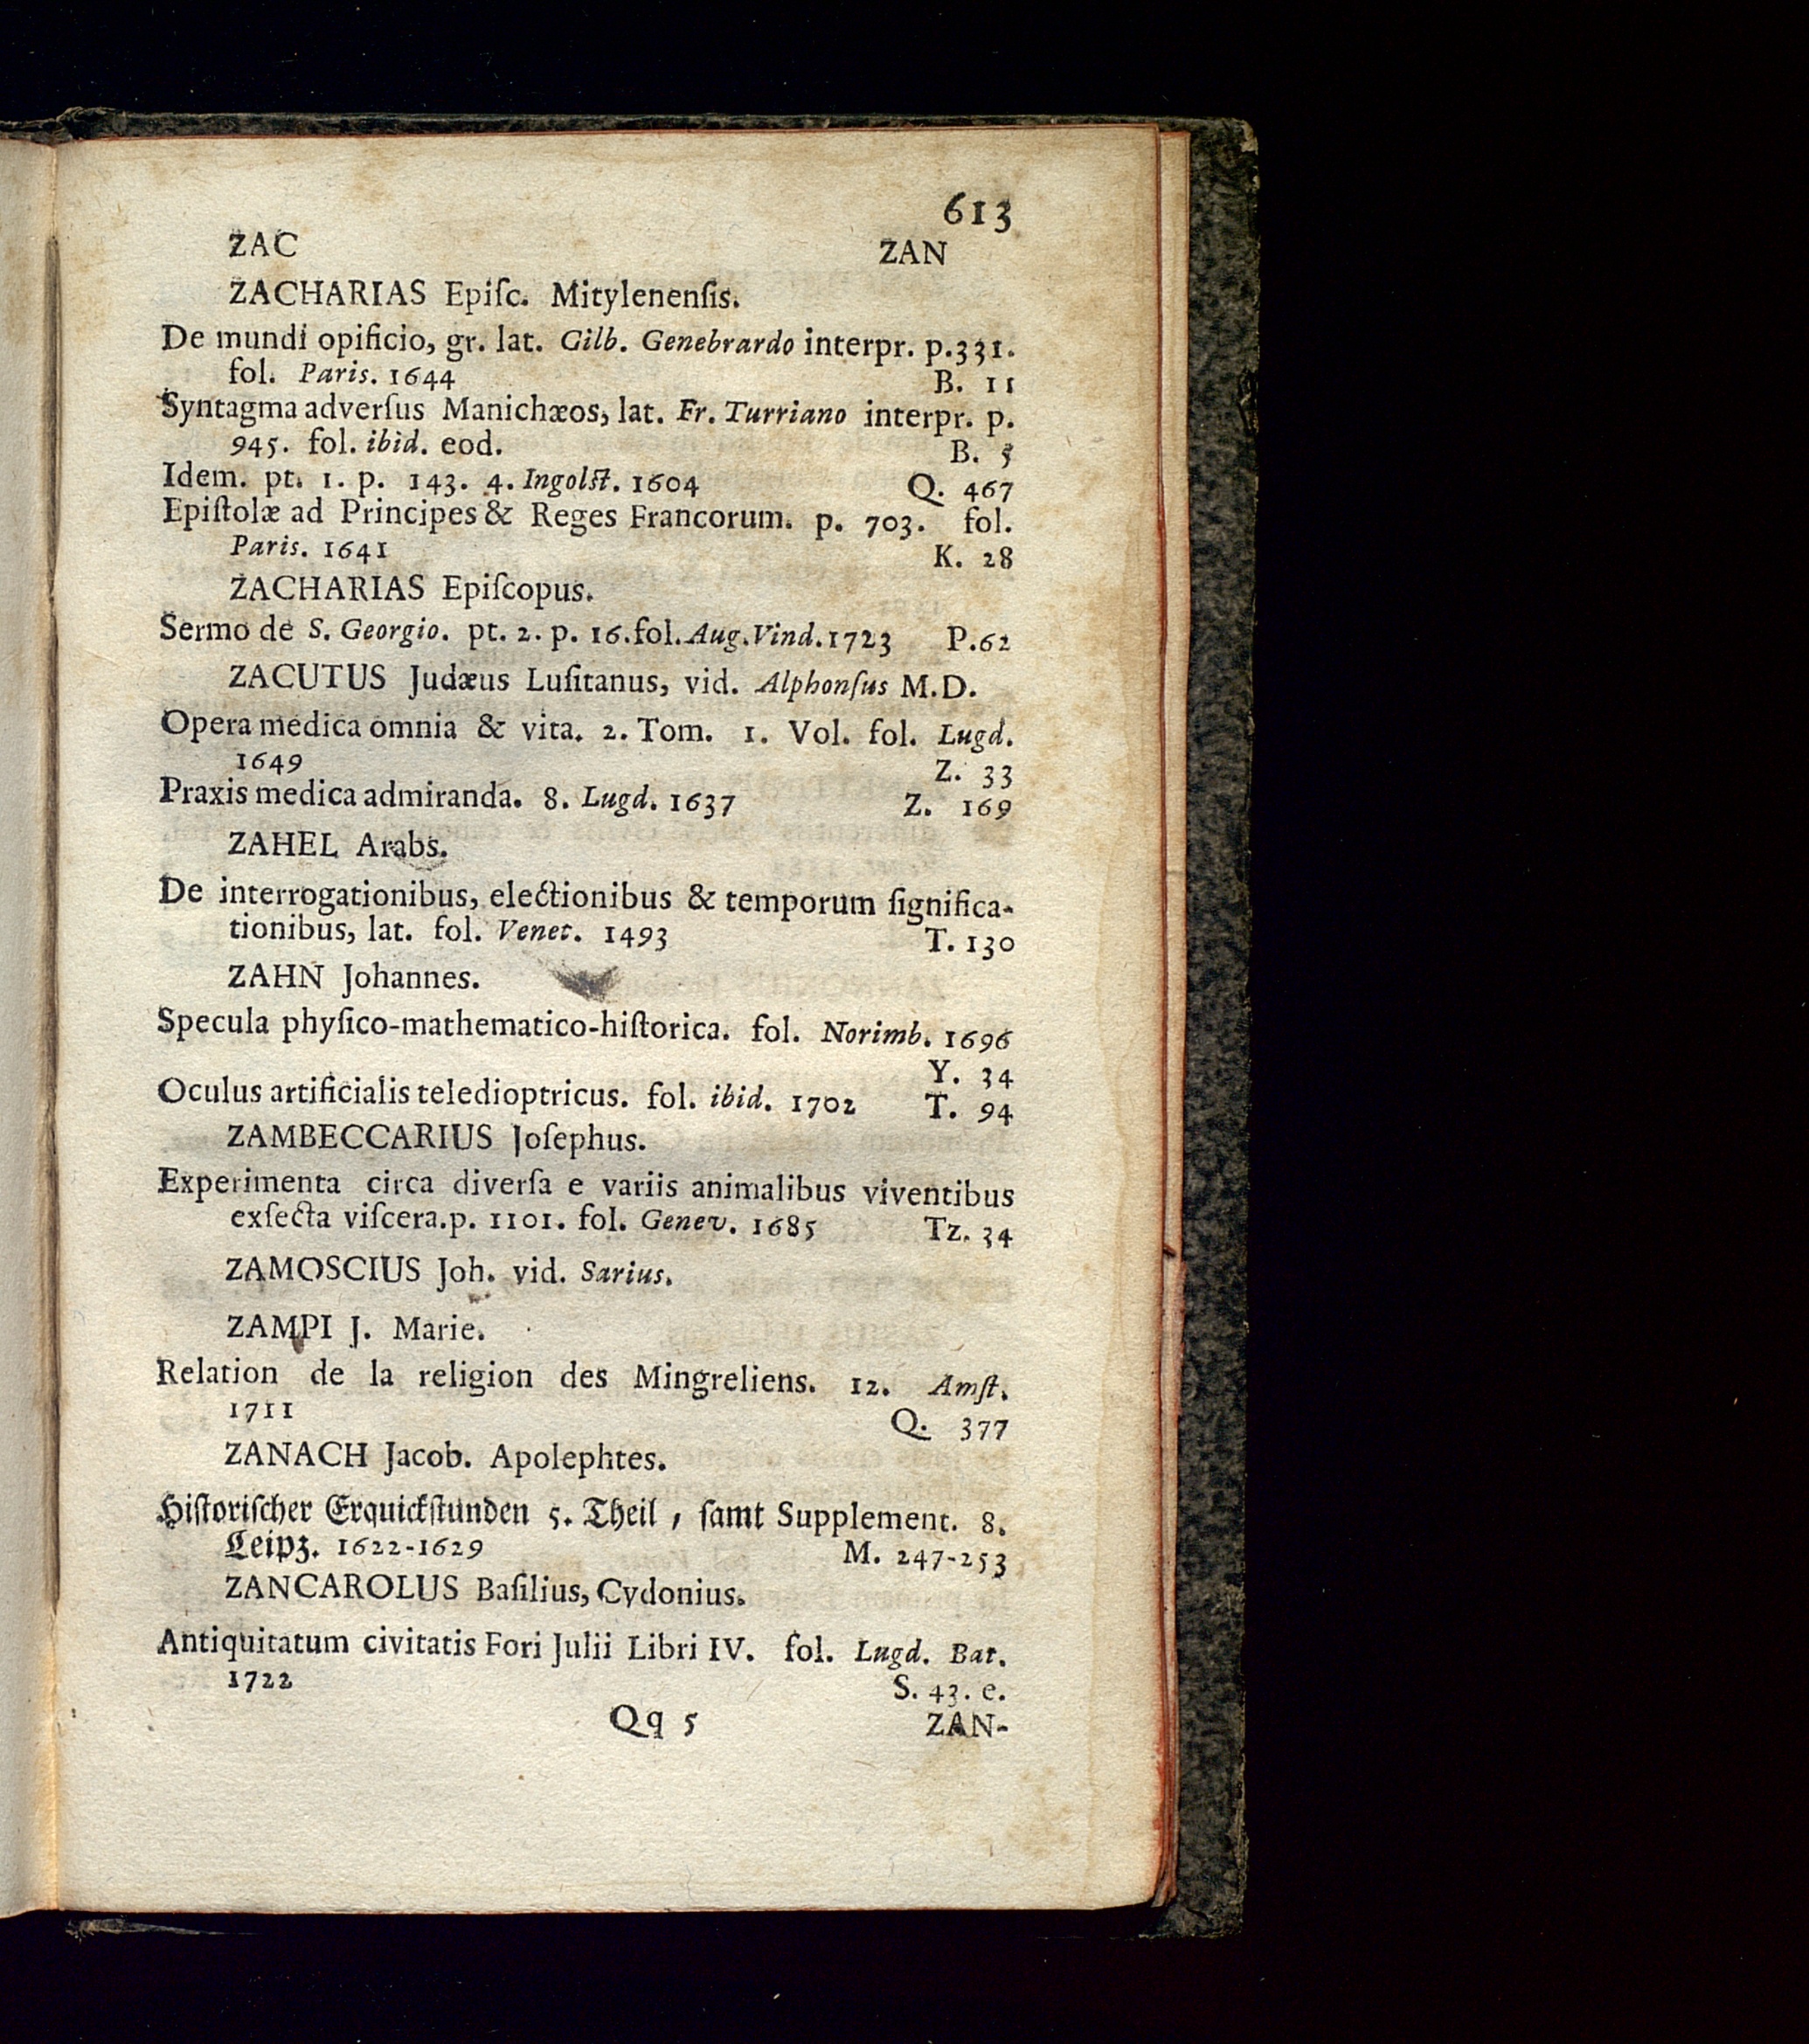 613
ZAC ZAN
ZACHARIAS Epiſc. Mitylenenſis.
De mundi opificio, gr. lat. Gilb. Genebrardo interpr. p.331.
fol. Paris. 1644 B. 11
Syntagma adverſus Manichæos, lat. Fr. Turriano interpr. p.
945. fol. ibid. eod. B. 5
Idem. pt. 1. p. 143. 4. Ingolſt. 1604 Q. 467
Epiſtolæ ad Principes & Reges Francorum. p. 703. fol.
Paris. 1641 K. 28
ZACHARIAS Epiſcopus.
Sermo de S. Georgio. pt. 2. p. 16.fol.Aug.Vind.1723 P.62
ZACUTUS Judæus Luſitanus, vid. Alphonſus M.D.
Opera medica omnia & vita. 2. Tom. 1. Vol. fol. Lugd.
1649 Z. 33
Praxis medica admiranda. 8. Lugd. 1637 Z. 169
ZAHEL Arabs.
De interrogationibus, electionibus & temporum ſignifica-
tionibus, lat. fol. Venet. 1493 T. 130
ZAHN Johannes.
Specula phyſico-mathematico-hiſtorica. fol. Norimb. 1696
Y. 34
Oculus artificialis teledioptricus. fol. ibid. 1702 T. 94
ZAMBECCARIUS Joſephus.
Experimenta circa diverſa e variis animalibus viventibus
exſecta viſcera.p. 1101. fol. Genev. 1685 Tz. 34
ZAMOSCIUS Joh. vid. Sarius.
ZAMPI J. Marie.
Relation de la religion des Mingreliens. 12. Amſt.
1711 Q. 377
ZANACH Jacob. Apolephtes.
Hiſtoriſcher Erquickſtunden 5. Theil, ſamt Supplement. 8.
Leipz. 1622-1629 M. 247-253
ZANCAROLUS Baſilius, Cydonius.
Antiquitatum civitatis Fori Julii Libri IV. fol. Lugd. Bat.
1722 S. 43. e.
Qq 5 ZAN-